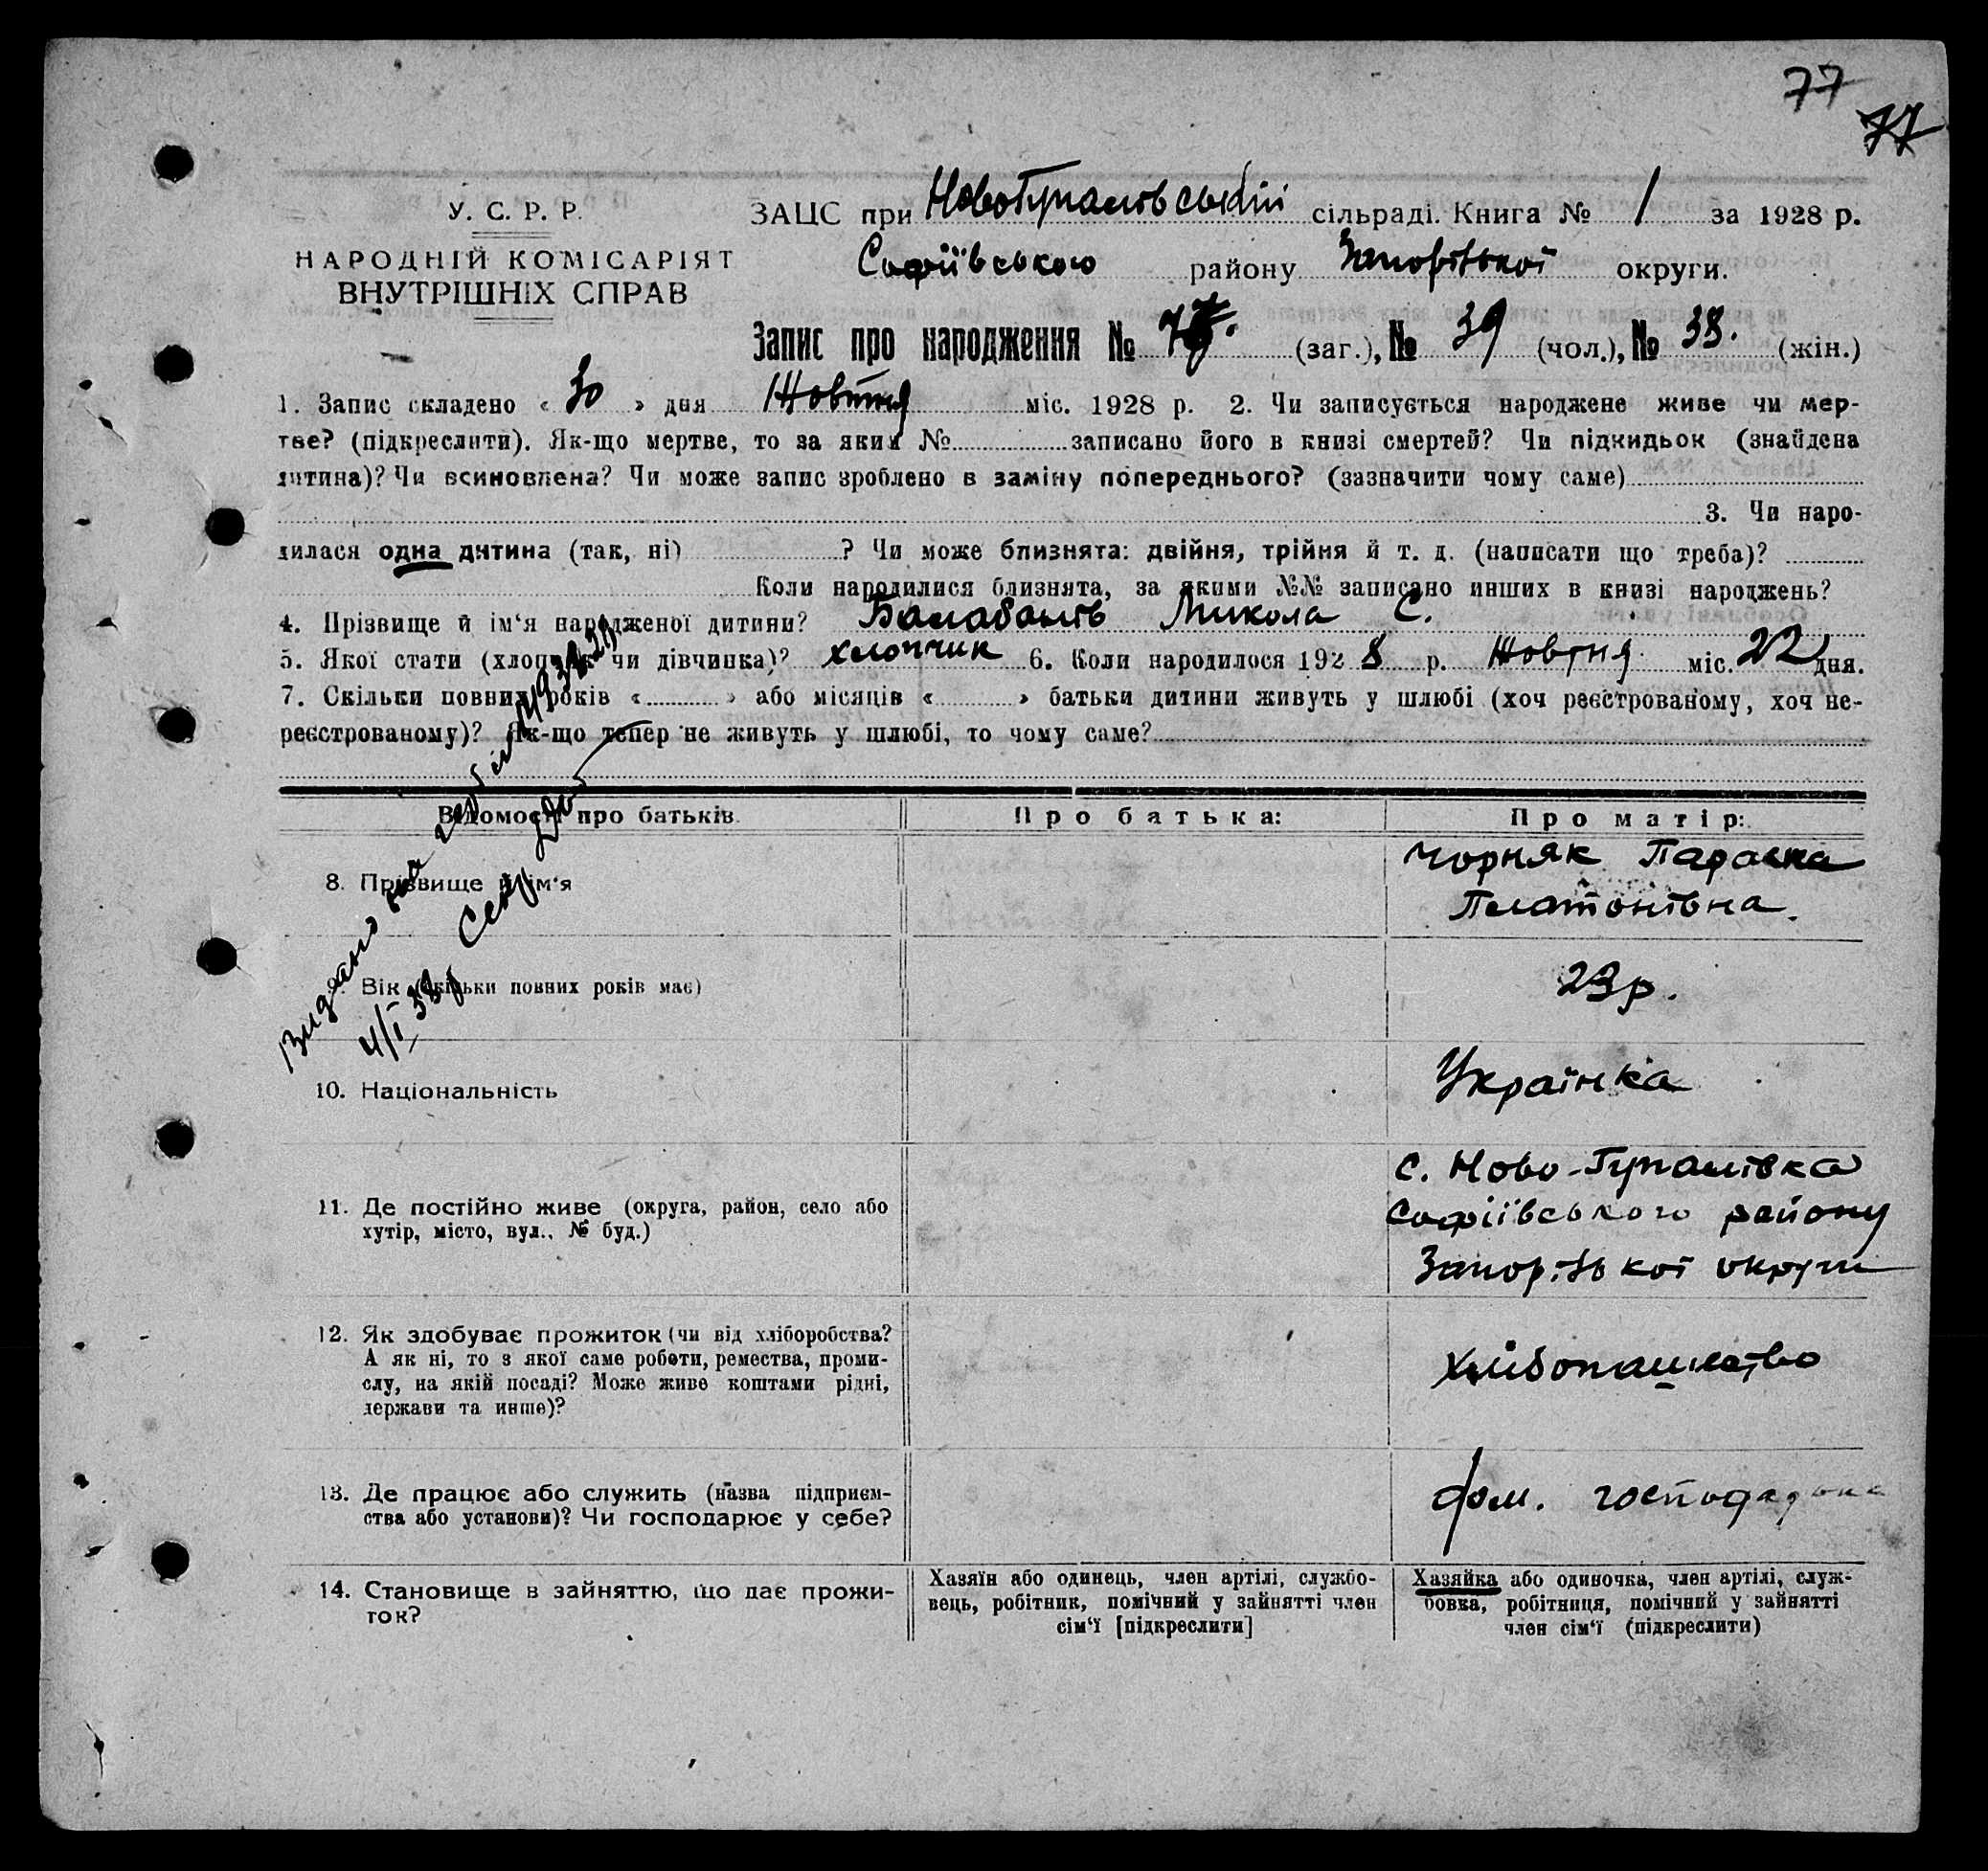 77
77
У. С. Р. Р.
НАРОДНІЙ КОМІСАРІЯТ
ВНУТРІШНІХ СПРАВ
ЗАЦС при НовоГупалівській сільраді. Книга № 1 за 1928 р.
Софіївського району Запорізької округи.
Запис про народження № 77. (заг.), № 39 (чол.), № 38. (жін.)
1. Запис складено « 30 » дня Жовтня міс. 1928 р. 2. Чи записується народжене живе чи мер-
тве? (підкреслити). Як-що мертве, то за яким № записано його в книзі смертей? Чи підкидьок (знайдена
дитина)? Чи всиновлена? Чи може запис зроблено в заміну попереднього? (зазначити чому саме)
3. Чи наро-
дилася одна дитина (так, ні) ? Чи може близнята: двійня, трійня й т. д. (написати що треба)?
Коли народилися близнята, за якими №№ записано инших в книзі народжень?
4. Прізвище й ім'я народженої дитини? Балабанів Микола С.
5. Якої статі (хлопчик чи дівчинка)? хлопчик 6. Коли народилося 1928 р. Жовтня міс. 22 дня.
7. Скільки повних років « » або місяців « » батьки дитини живуть у шлюбі (хоч реєстрованому, хоч не-
реєстрованому)? Як-що тепер не живуть у шлюбі, то чому саме?
Відомості про батьків
Про батька:
Про матір:
8. Прізвище й ім'я
Чорняк Параска
Платонівна.
9. Вік (скільки повних років має)
23 р.
10. Національність
Українка
11. Де постійно живе (округа, район, село або
хутір, місто, вул., № буд.)
с. Ново-Гупалівка
Софіївського району
Запорізької округи
12. Як здобуває прожиток (чи від хліборобства?
А як ні, то з якої саме роботи, ремества, проми-
слу, на якій посаді? Може живе коштами рідні,
держави та инше)?
Хлібопашество
13. Де працює або служить (назва підприєм-
ства або установи)? Чи господарює у себе?
дом. господарка
14. Становище в зайняттю, що дає прожи-
ток?
Хазяїн або одинець, член артілі, службо-
вець, робітник, помічний у зайнятті член
сім'ї [підкреслити]
Хазяйка або одиночка, член артілі, служ-
бовка, робітниця, помічний у зайнятті
член сім'ї (підкреслити)
Видано
4/I 38 р Секр